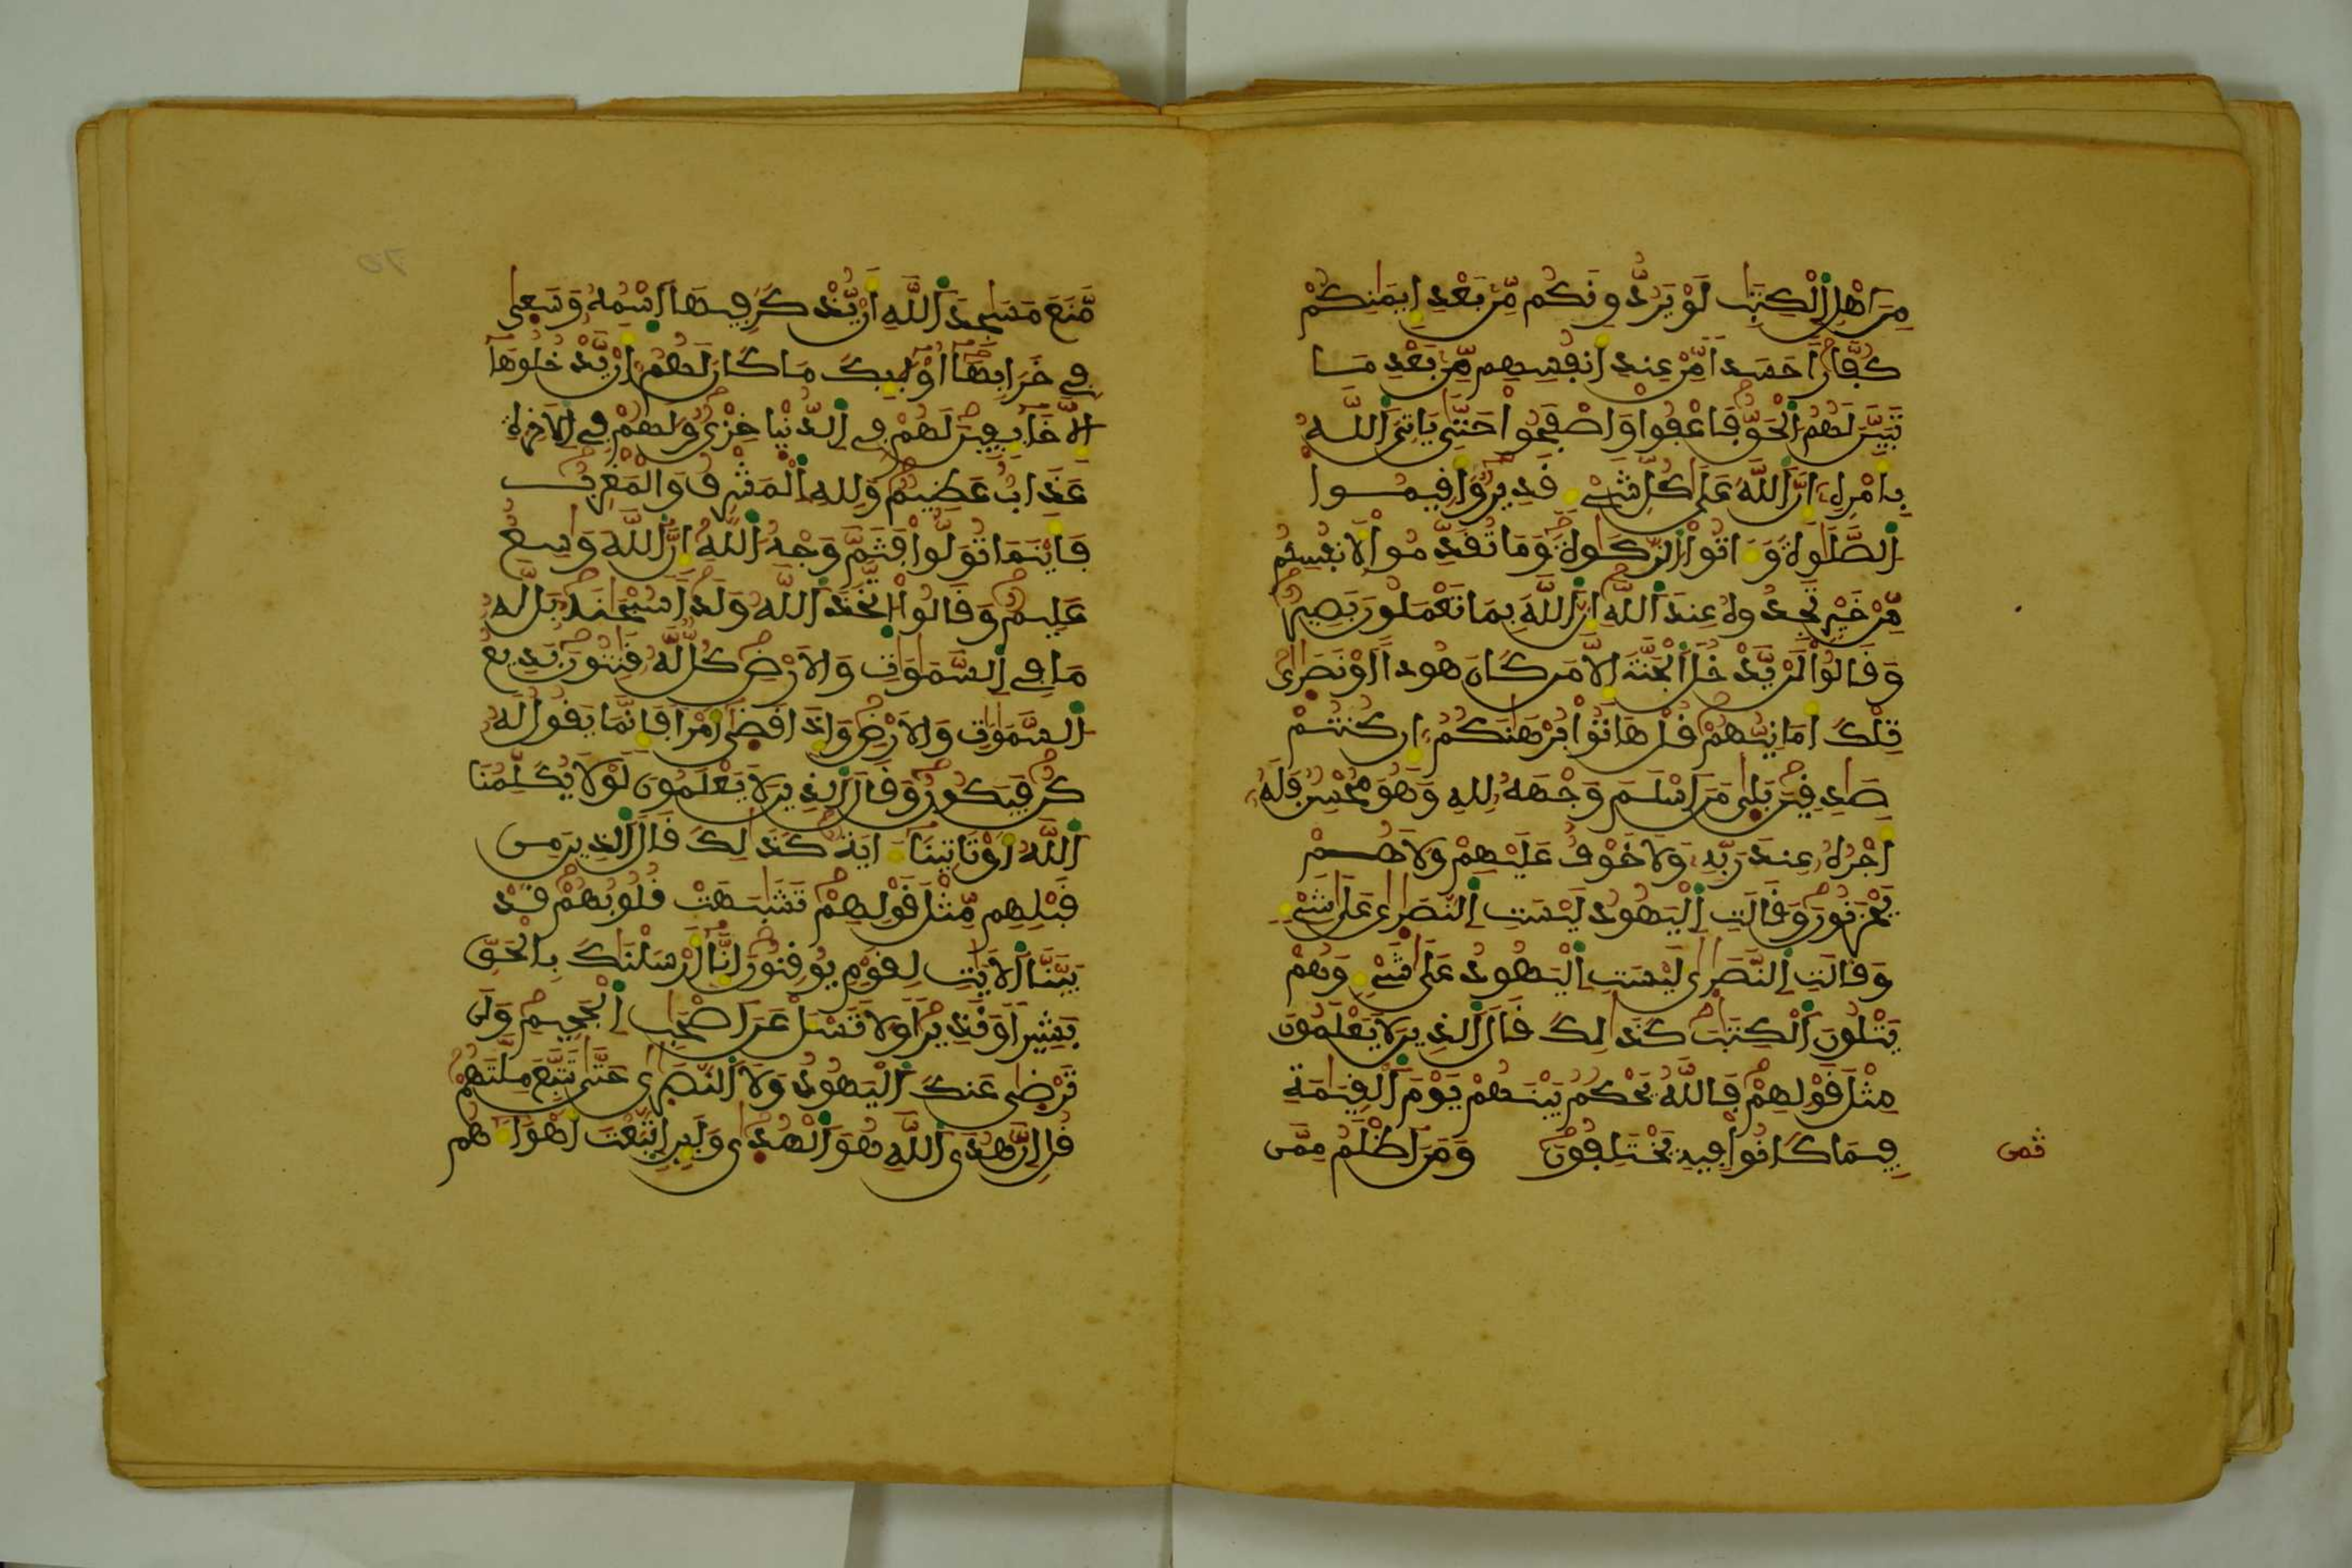 مِّنَ اَهْلِ اِ۬لْكِتَٰبِ لَوْ يَرُدُّونَكُم مِّنۢ بَعْدِ إِيمَٰنِكُمْ
كُفَّاراً حَسَداٗ مِّنْ عِندِ أَنفُسِهِم مِّنۢ بَعْدِ مَا
تَبَيَّنَ لَهُمُ اُ۬لْحَقُّ فَاعْفُواْ وَاصْفَحُواْ حَتَّىٰ يَاتِيَ اَ۬للَّهُ
بِأَمْرِهِۦٓ إِنَّ اَ۬للَّهَ عَلَىٰ كُلِّ شَيْءٖ قَدِيرٞ وَأَقِيمُواْ
اُ۬لصَّلَوٰةَ وَءَاتُواْ اُ۬لزَّكَوٰةَ وَمَا تُقَدِّمُواْ لِأَنفُسِكُم
مِّنْ خَيْرٖ تَجِدُوهُ عِندَ اَ۬للَّهِ إِنَّ اَ۬للَّهَ بِمَا تَعْمَلُونَ بَصِيرٞ
وَقَالُواْ لَنْ يَّدْخُلَ اَ۬لْجَنَّةَ إِلَّا مَن كَانَ هُوداً اَوْ نَصَٰرَىٰ
تِلْكَ أَمَانِيُّهُمْ قُلْ هَاتُواْ بُرْهَٰنَكُمُۥٓ إِن كُنتُمْ
صَٰدِقِينَ بَلَىٰ مَنَ اَسْلَمَ وَجْهَهُۥ لِلهِ وَهُوَ مُحْسِنٞ فَلَهُۥٓ
أَجْرُهُۥ عِندَ رَبِّهِۦ وَلَا خَوْفٌ عَلَيْهِمْ وَلَا هُمْ
يَحْزَنُونَ وَقَالَتِ اِ۬لْيَهُودُ لَيْسَتِ اِ۬لنَّصَٰرَىٰ عَلَىٰ شَيْءٖ
وَقَالَتِ اِ۬لنَّصَٰرَىٰ لَيْسَتِ اِ۬لْيَهُودُ عَلَىٰ شَيْءٖ وَهُمْ
يَتْلُونَ اَ۬لْكِتَٰبَ كَذَٰلِكَ قَالَ اَ۬لذِينَ لَا يَعْلَمُونَ
مِثْلَ قَوْلِهِمْ فَاللَّهُ يَحْكُمُ بَيْنَهُمْ يَوْمَ اَ۬لْقِيَٰمَةِ
فِيمَا كَانُواْ فِيهِ يَخْتَلِفُونَ وَمَنَ اَظْلَمُ مِمَّن
مَّنَعَ مَسَٰجِدَ اَ۬للَّهِ أَنْ يُّذْكَرَ فِيهَا اَ۪سْمُهُۥ وَسَعَىٰ
فِي خَرَابِهَآ أُوْلَٰٓئِكَ مَا كَانَ لَهُمُۥٓ أَنْ يَّدْخُلُوهَآ
إِلَّا خَآئِفِينَ لَهُمْ فِي اِ۬لدُّنْيَا خِزْيٞ وَلَهُمْ فِي اِ۬لَاخِرَةِ
عَذَابٌ عَظِيمٞ وَلِلهِ اِ۬لْمَشْرِقُ وَالْمَغْرِبُ
فَأَيْنَمَا تُوَلُّواْ فَثَمَّ وَجْهُ اُ۬للَّهِ إِنَّ اَ۬للَّهَ وَٰسِعٌ
عَلِيمٞ وَقَالُواْ اُ۪تَّخَذَ اَ۬للَّهُ وَلَداٗ سُبْحَٰنَهُۥ بَل لَّهُۥ
مَا فِي اِ۬لسَّمَٰوَٰتِ وَالَارْضِ كُلّٞ لَّهُۥ قَٰنِتُونَ بَدِيعُ
اُ۬لسَّمَٰوَٰتِ وَالَارْضِ وَإِذَا قَضَىٰٓ أَمْراٗ فَإِنَّمَا يَقُولُ لَهُۥ
كُن فَيَكُونُ وَقَالَ اَ۬لذِينَ لَا يَعْلَمُونَ لَوْلَا يُكَلِّمُنَا
اَ۬للَّهُ أَوْ تَاتِينَآ ءَايَةٞ كَذَٰلِكَ قَالَ اَ۬لذِينَ مِن
قَبْلِهِم مِّثْلَ قَوْلِهِمْ تَشَٰبَهَتْ قُلُوبُهُمْ قَدْ
بَيَّنَّا اَ۬لَايَٰتِ لِقَوْمٖ يُوقِنُونَ إِنَّآ أَرْسَلْنَٰكَ بِالْحَقِّ
بَشِيراٗ وَنَذِيراٗ وَلَا تَسْـَٔلْ عَنَ اَصْحَٰبِ اِ۬لْجَحِيمِ وَلَن
تَرْضَىٰ عَنكَ اَ۬لْيَهُودُ وَلَا اَ۬لنَّصَٰرَىٰ حَتَّىٰ تَتَّبِعَ مِلَّتَهُمْ
قُلِ اِنَّ هُدَى اَ۬للَّهِ هُوَ اَ۬لْهُدَىٰ وَلَئِنِ اِ۪تَّبَعْتَ أَهْوَآءَهُم